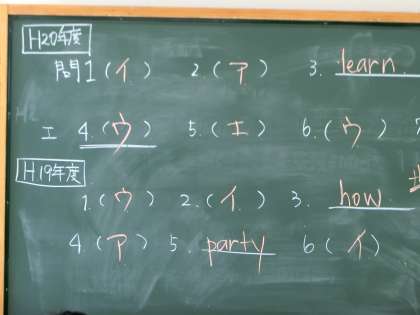 H20年度
問1(イ) 2.(ア) 3. learn
エ 4.(ウ) 5.(エ) 6.(ウ) 7
H19年度
1.(ウ) 2.(イ) 3. how
4.(ア) 5. party 6(イ)